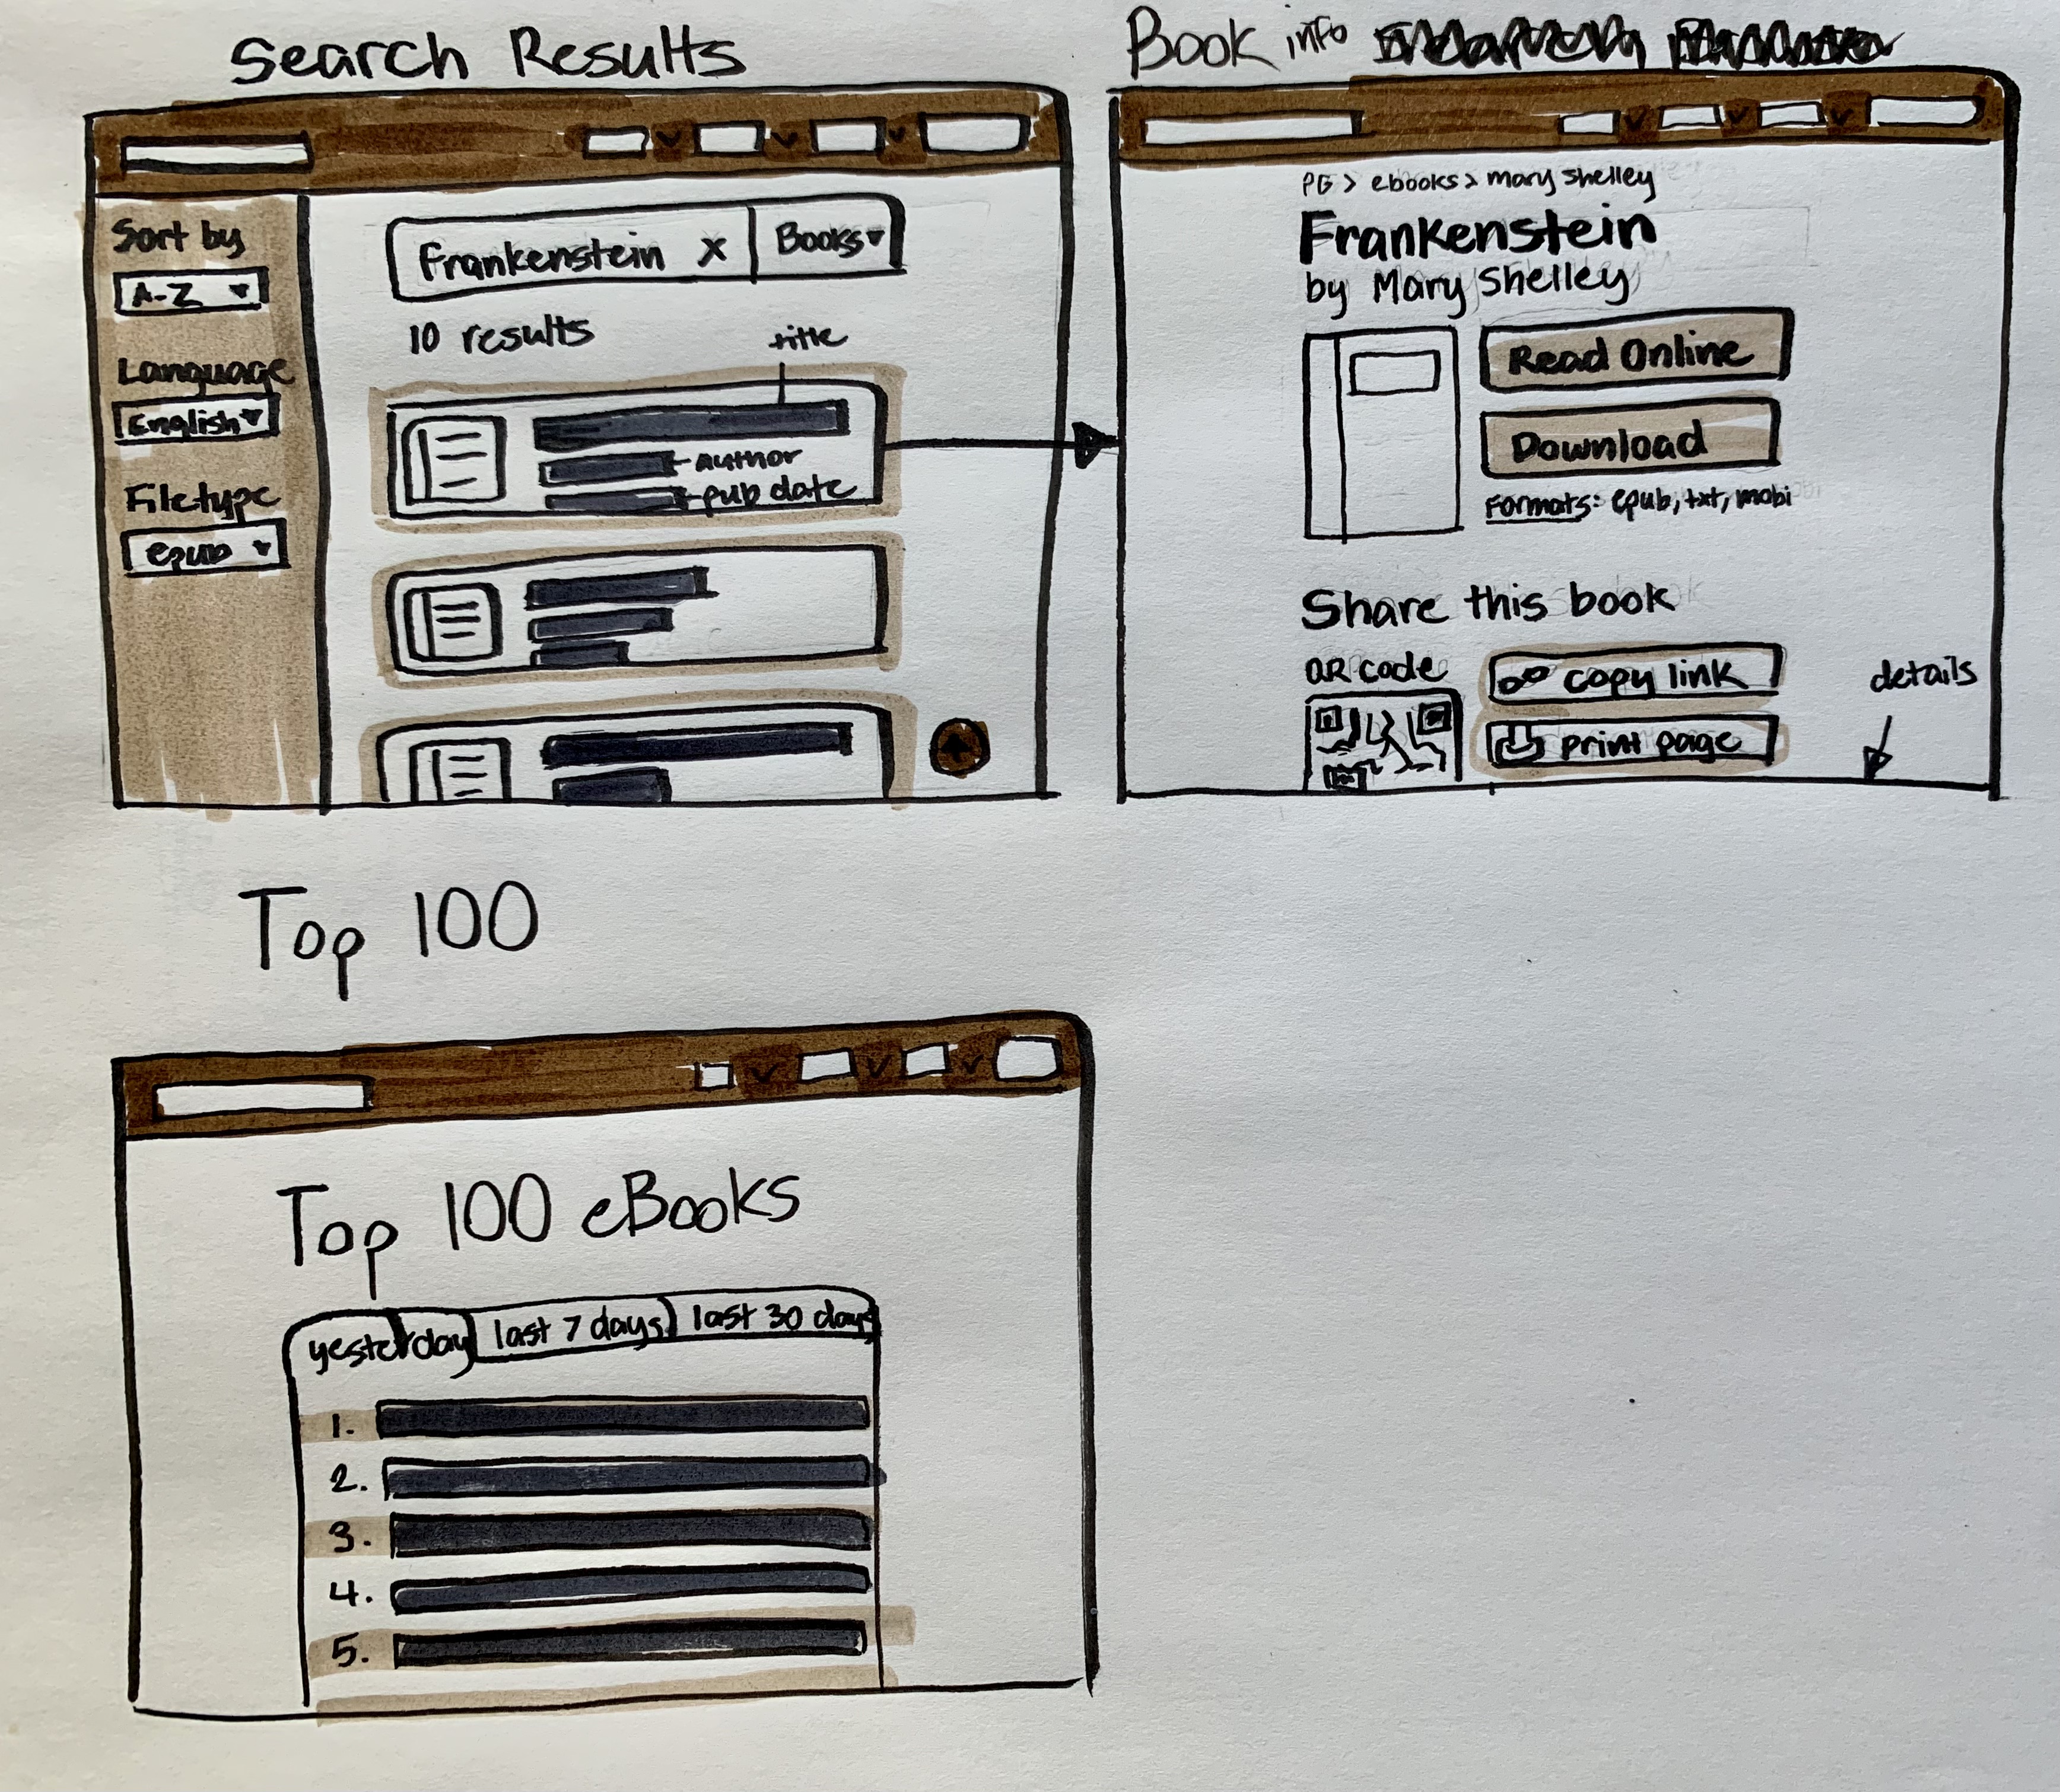 Search Results
Sort by
A-Z
Language
English
Filetype
epub
Frankenstein x Books
10 results
title
author
pub date
Book info
PG > ebooks > mary shelley
Frankenstein
by Mary Shelley
Read Online
Download
Formats: epub, txt, mobi
Share this book
QR code
copy link
print page
details
Top 100
Top 100 eBooks
yesterday last 7 days last 30 days
1.
2.
3.
4.
5.